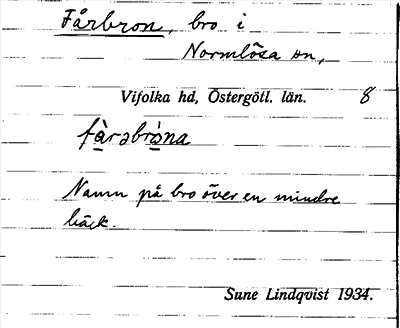 Fårbron, bro i
Normlösa sn,
Vifolka hd, Östergötl. län. 8
fàrəbrò̱na
Namn på bro över en mindre
bäck.
Sune Lindqvist 1934.